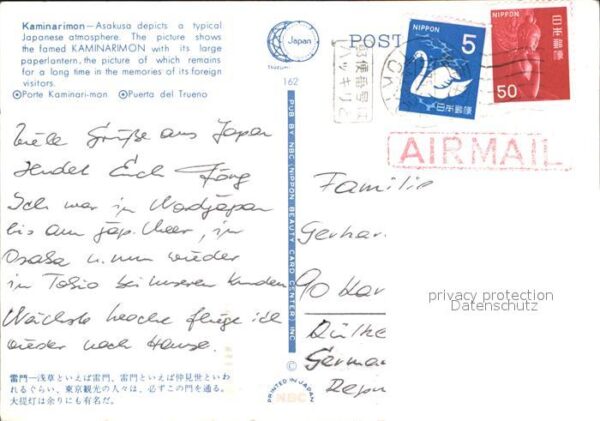 Kaminarimon—Asakusa depicts a typical
Japanese atmosphere. The picture shows
the famed KAMINARIMON with its large
paperlontern, the picture of which remains
for a long time in the memories of its foreign
visitors.
⦿Porte Kaminari-mon. ⦿Puerta del Trueno
Japan
162
POST
NIPPON
5
日本郵便
NIPPON
日本郵便
50
郵便番号は
ハッキリと
AIRMAIL
Viele Grüße aus Japan
sendet Euch Jörg
Ich war in Nordjapan
bis am jap. Meer, in
Osaka u. nun wieder
in Tokio bei unseren Kunden
Nächste Woche fliege ich
wieder nach Hause.
PUB BY NBC (NIPPON BEAUTY CARD CENTER) INC.
©
PRINTED IN JAPAN
NBC
Familie
Gerhar
90 Kar
Dülke
German
Repu
privacy protection
Datenschutz
雷門—浅草といえば雷門、雷門といえば仲見世といわ
れるぐらい、東京観光の人々は、必ずこの門を通る。
大提灯は余りにも有名だ。